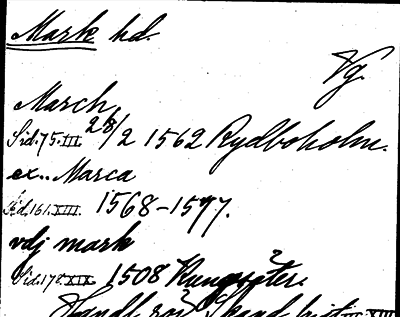 Mark hd.
Vg.
March,
Sid. 75. III. 28/2 1562 Rydboholm.
ex.. Marca
Sid. 161. XIII. 1568–1597.
vdj mark
Sid. 178. XIX. 1508
Handl. rör. Skand. hist. III. XIII